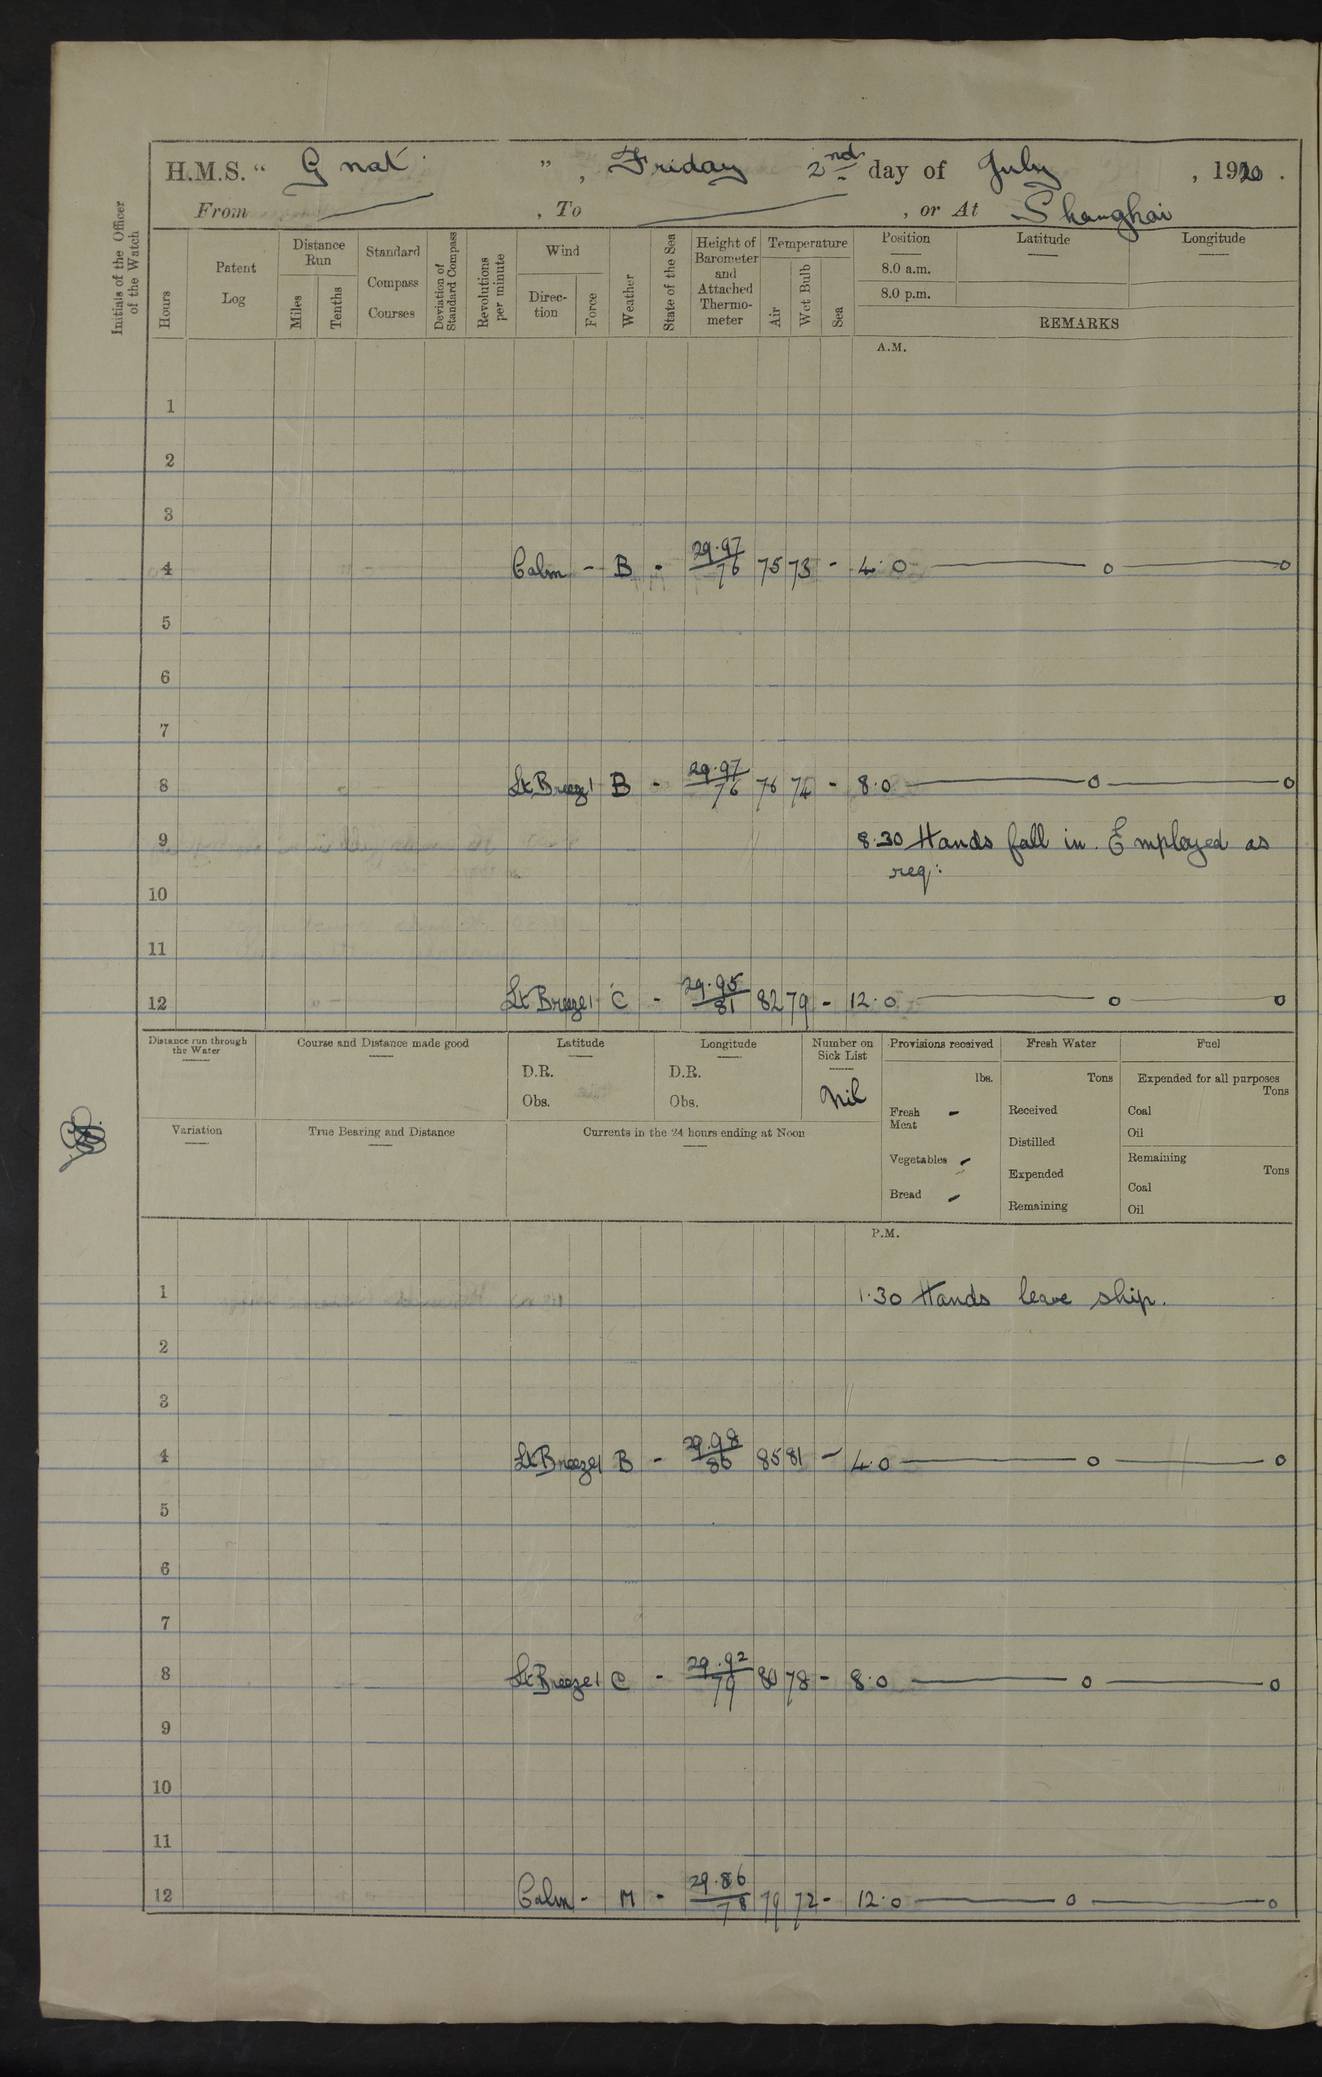 H.M.S. " Gnat ", Friday 2nd day of July, 1920.
From , To , or At Shanghai
Initials of the Officer of the Watch
Hours
Patent Log
Distance Run
Miles
Tenths
Standard Compass Courses
Deviation of Standard Compass
Revolutions per minute
Wind
Direction
Force
Weather
State of the Sea
Height of Barometer and Attached Thermometer
Temperature
Air
Wet Bulb
Sea
Position
8.0 a.m.
8.0 p.m.
Latitude
Longitude
REMARKS
A.M.
1
2
3
4 Calm - B - 29.97/76 75 73 - 4.0 —— o —— o
5
6
7
8 Lt Breeze 1 B - 29.97/76 76 74 - 8.0 —— o —— o
9 8.30 Hands fall in. Employed as
req:
10
11
12 Lt Breeze 1 C - 29.95/81 82 79 - 12.0 —— o —— o
Distance run through the Water
Course and Distance made good
Latitude
D.R.
Obs.
Longitude
D.R.
Obs.
Number on Sick List
Nil
Provisions received
lbs.
Fresh Meat -
Vegetables -
Bread -
Fresh Water
Tons
Received
Distilled
Expended
Remaining
Fuel
Expended for all purposes
Tons
Coal
Oil
Remaining
Tons
Coal
Oil
Variation
True Bearing and Distance
Currents in the 24 hours ending at Noon
P.M.
1 1.30 Hands leave ship.
2
3
4 Lt Breeze 1 B - 29.98/86 85 81 - 4.0 —— o —— o
5
6
7
8 Lt Breeze 1 C - 29.92/79 80 78 - 8.0 —— o —— o
9
10
11
12 Calm - M - 29.86/78 79 72 - 12.0 —— o —— o